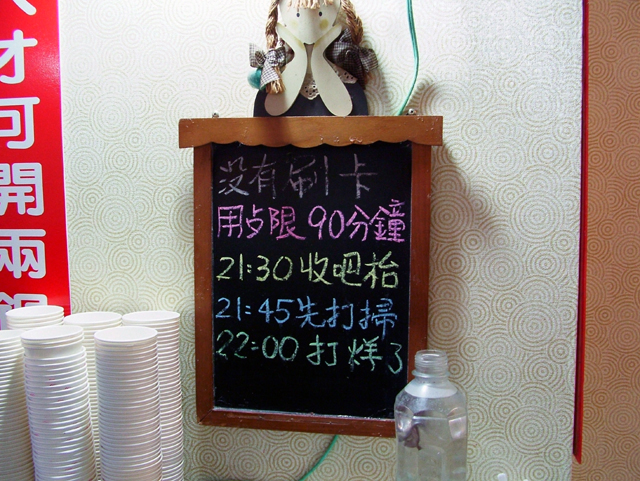 才可開兩
没有刷卡
用歺限90分鐘
21:30收吧枱
21:45先打掃
22:00打烊了